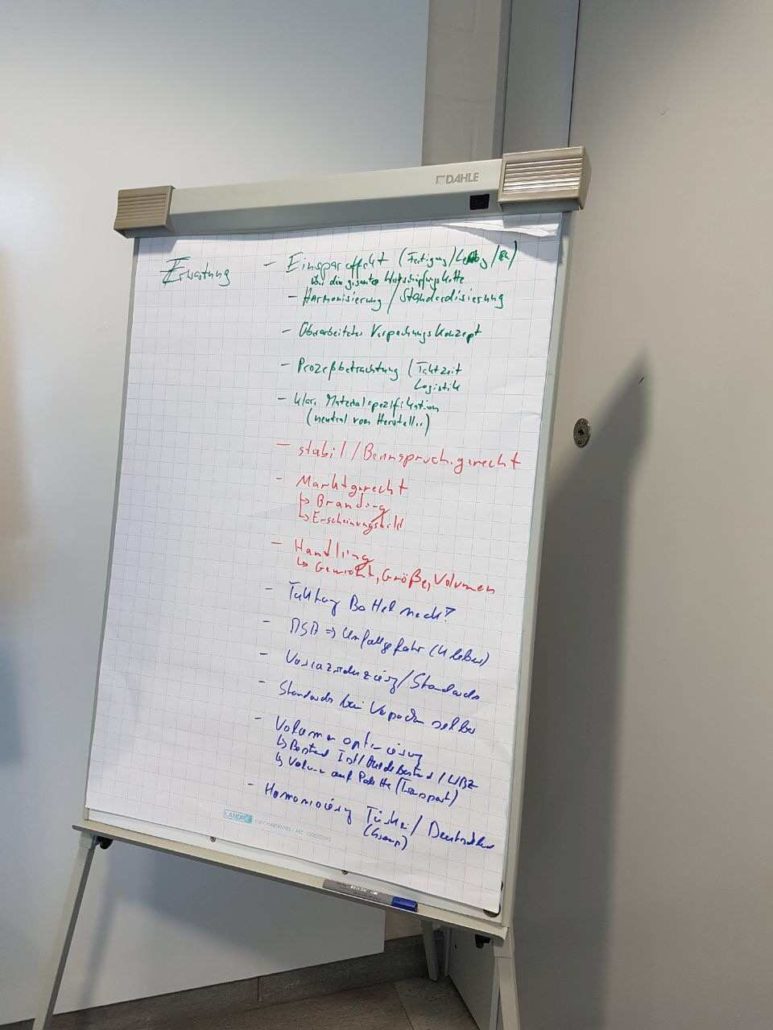 DAHLE
Erwartung
- Einspareffekt (Fertigung/
über die gesamte Wertschöpfungskette
- Harmonisierung / Standardisierung
- Überarbeitetes Verpackungskonzept
- Prozeßbetrachtung (Taktzeit
Logistik
- klare Materialspezifikation
(neutral vom Hersteller)
- stabil / Beanspruchungsgerecht
- Marktgerecht
↳ Branding
↳ Erscheinungsbild
- Handling
↳ Gewicht, Größe, Volumen
- noch?
- ASA ⇒ Unfallgefahr (Kleber)
- Variantenreduzierung/Standards
- Standards beim Verpacken selber
- Volumenoptimierung
↳ Bestand Ist/ / WBZ
↳ Volumen auf Palette (Transport)
- Harmonisierung Türkei / Deutschland
(Group)
LANDRÉ